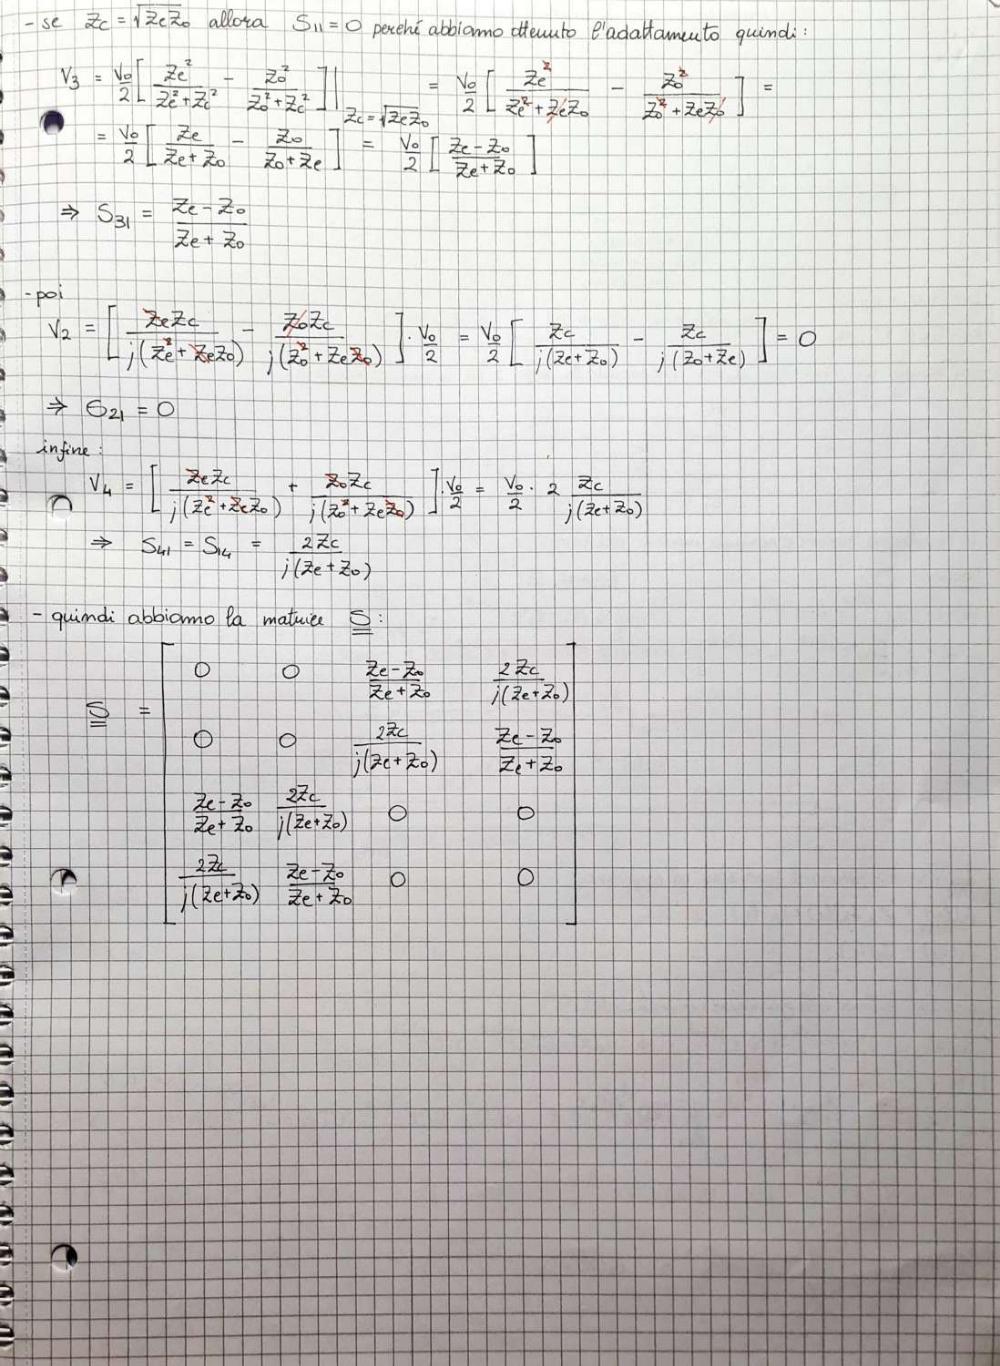 - se Zc = √ZeZo allora S11 = 0 perché abbiamo ottenuto l'adattamento quindi:
V3 = Vo/2 [ Ze²/(Ze²+Zc²) - Zo²/(Zo²+Zc²) ] |Zc=√ZeZo = Vo/2 [ Ze²/(Ze²+ZeZo) - Zo²/(Zo²+ZeZo) ] =
= Vo/2 [ Ze/(Ze+Zo) - Zo/(Zo+Ze) ] = Vo/2 [ (Ze-Zo)/(Ze+Zo) ]
⇒ S31 = (Ze-Zo)/(Ze+Zo)
- poi
V2 = [ ZeZc/j(Ze²+ZeZo) - ZoZc/j(Zo²+ZeZo) ] · Vo/2 = Vo/2 [ Zc/j(Ze+Zo) - Zc/j(Zo+Ze) ] = 0
⇒ S21 = 0
infine:
V4 = [ ZeZc/j(Ze²+ZeZo) + ZoZc/j(Zo²+ZeZo) ] · Vo/2 = Vo/2 · 2 Zc/j(Ze+Zo)
⇒ S41 = S14 = 2Zc/j(Ze+Zo)
- quindi abbiamo la matrice S:
0 0 (Ze-Zo)/(Ze+Zo) 2Zc/j(Ze+Zo)
S = 0 0 2Zc/j(Ze+Zo) (Ze-Zo)/(Ze+Zo)
(Ze-Zo)/(Ze+Zo) 2Zc/j(Ze+Zo) 0 0
2Zc/j(Ze+Zo) (Ze-Zo)/(Ze+Zo) 0 0